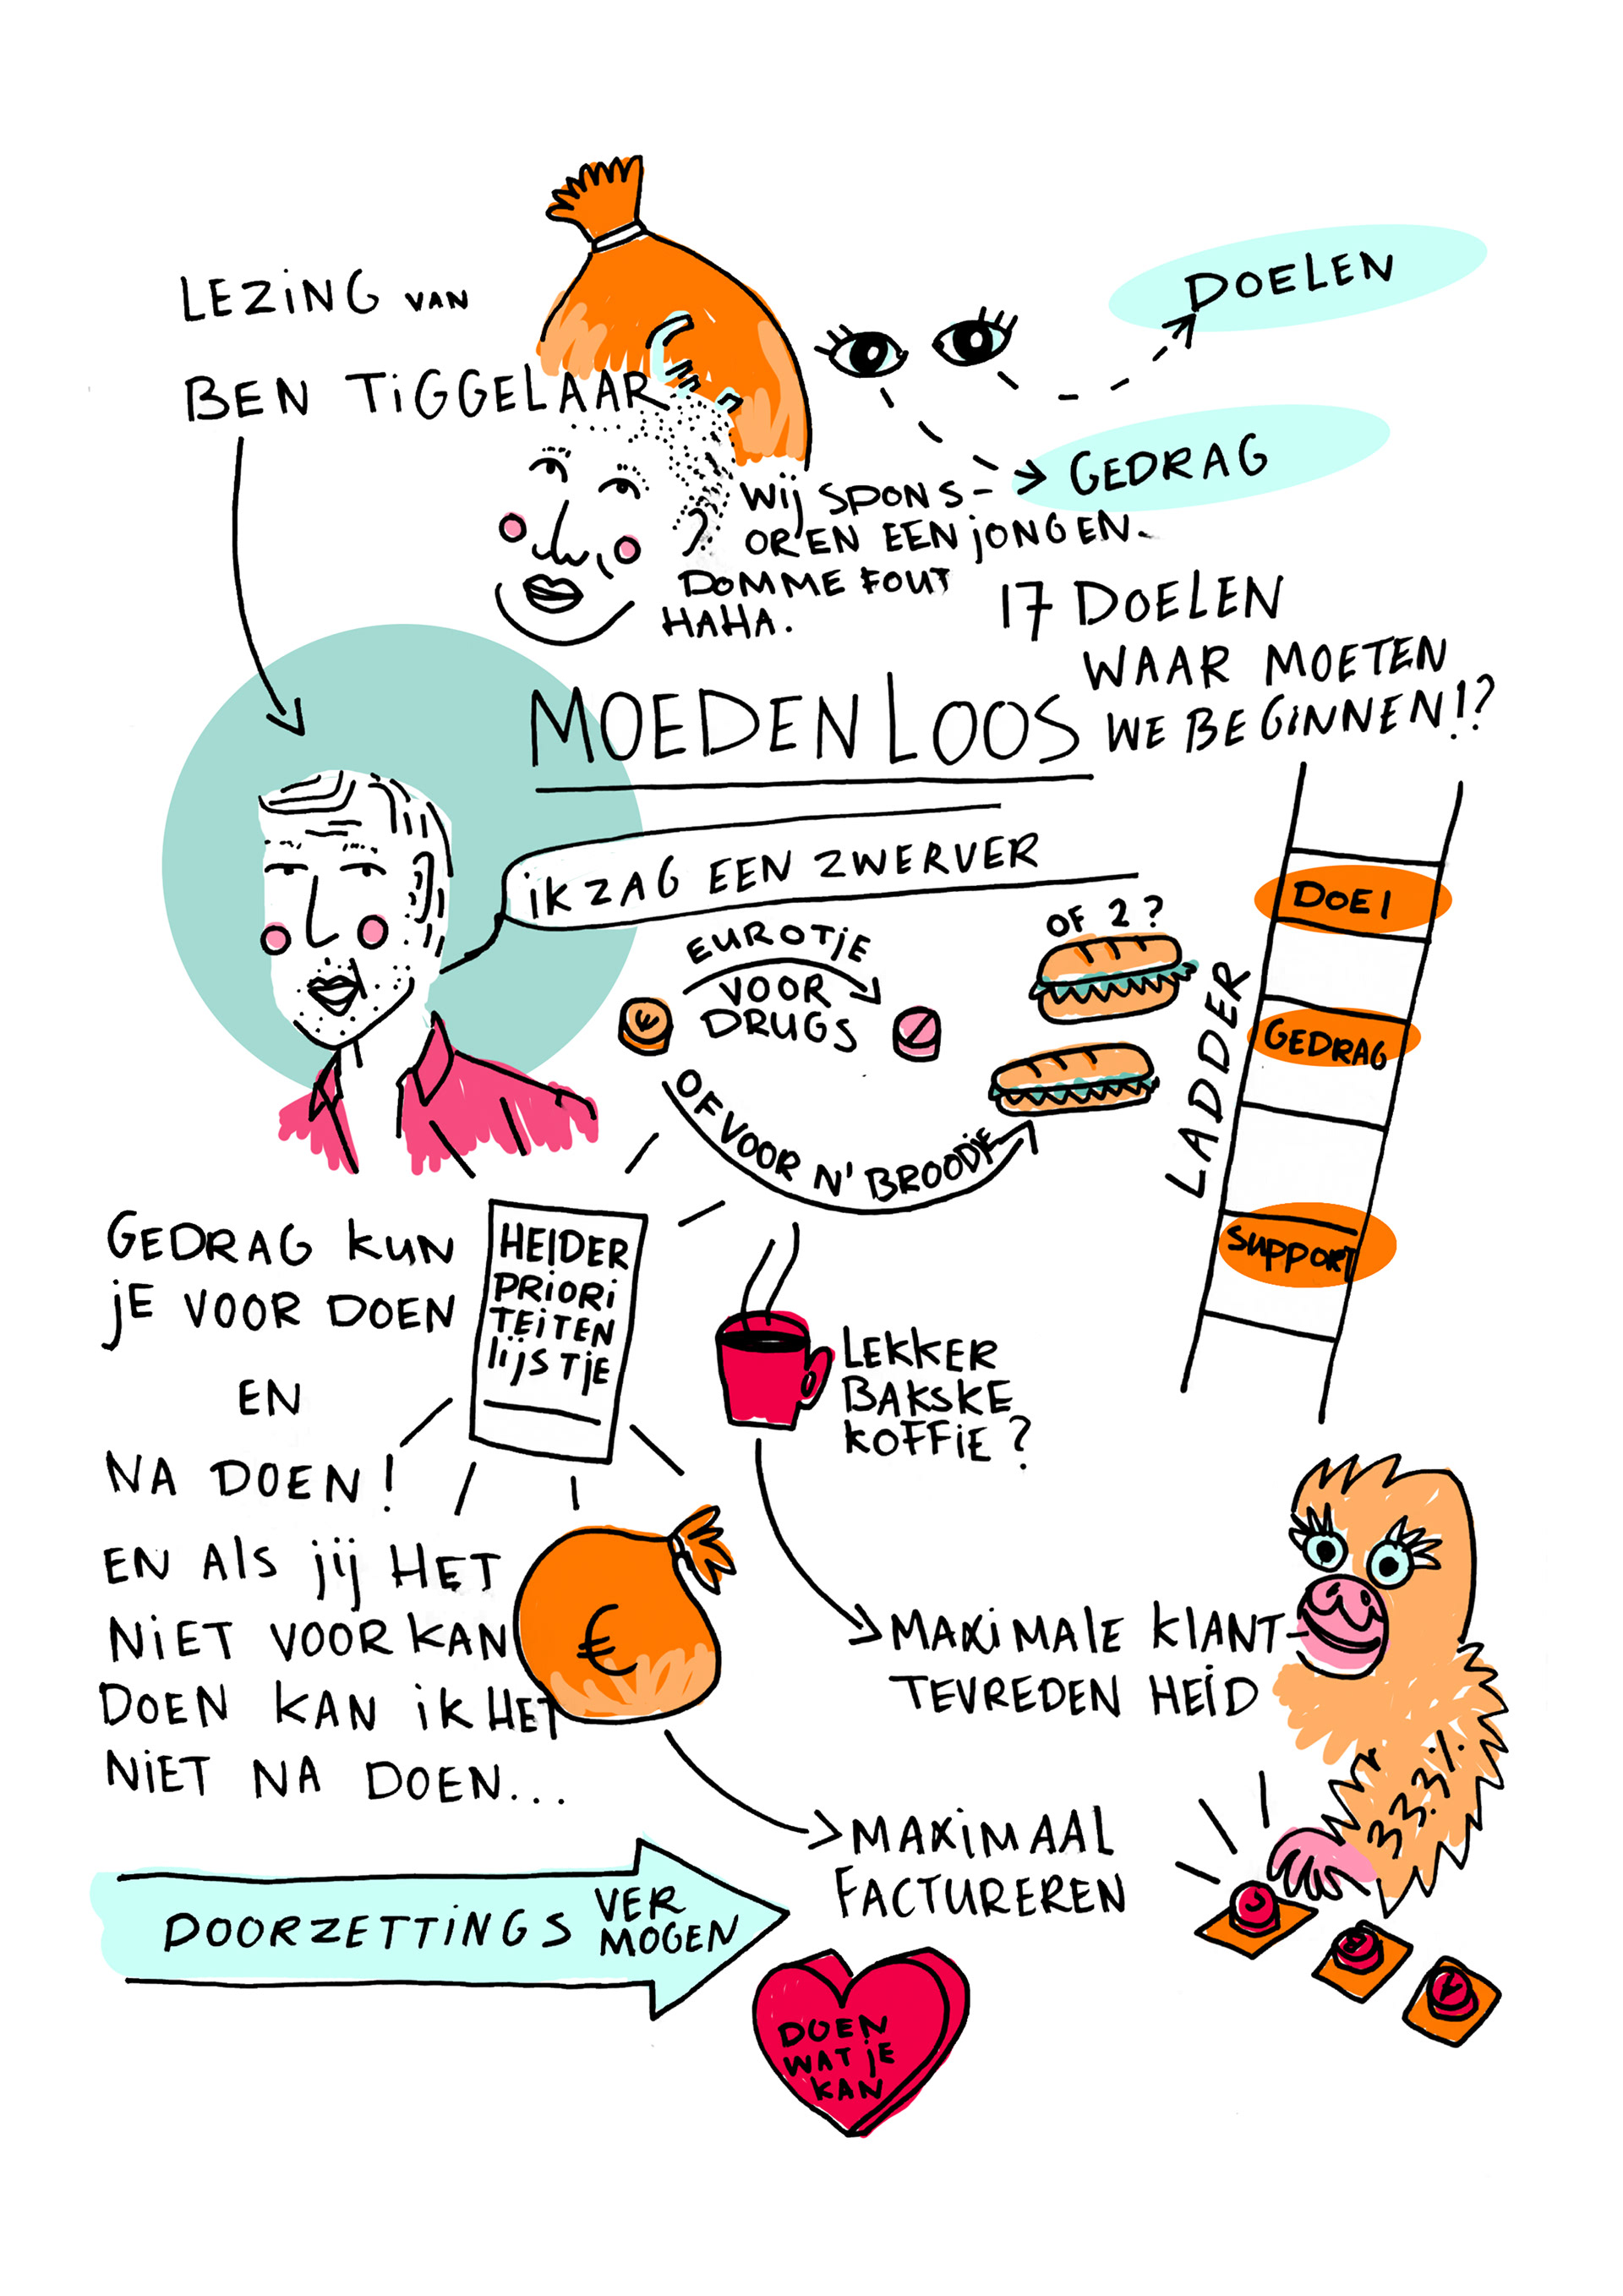 LEZING VAN
BEN TIGGELAAR
DOELEN
GEDRAG
WIJ SPONS-
OREN EEN JONGEN.
DOMME FOUT
HAHA.
17 DOELEN
WAAR MOETEN
WE BEGINNEN!?
MOEDENLOOS
IK ZAG EEN ZWERVER
EUROTJE
VOOR
DRUGS
OF VOOR N' BROODJE
OF 2?
LADDER
DOEL
GEDRAG
SUPPORT
GEDRAG KUN
JE VOOR DOEN
EN
NA DOEN!
EN ALS JIJ HET
NIET VOOR KAN
DOEN KAN IK HET
NIET NA DOEN...
HELDER
PRIORI
TEITEN
LIJSTJE
LEKKER
BAKSKE
KOFFIE?
€
MAXIMALE KLANT-
TEVREDEN HEID
MAXIMAAL
FACTUREREN
33.%
DOORZETTINGS VER
MOGEN
DOEN
WAT JE
KAN